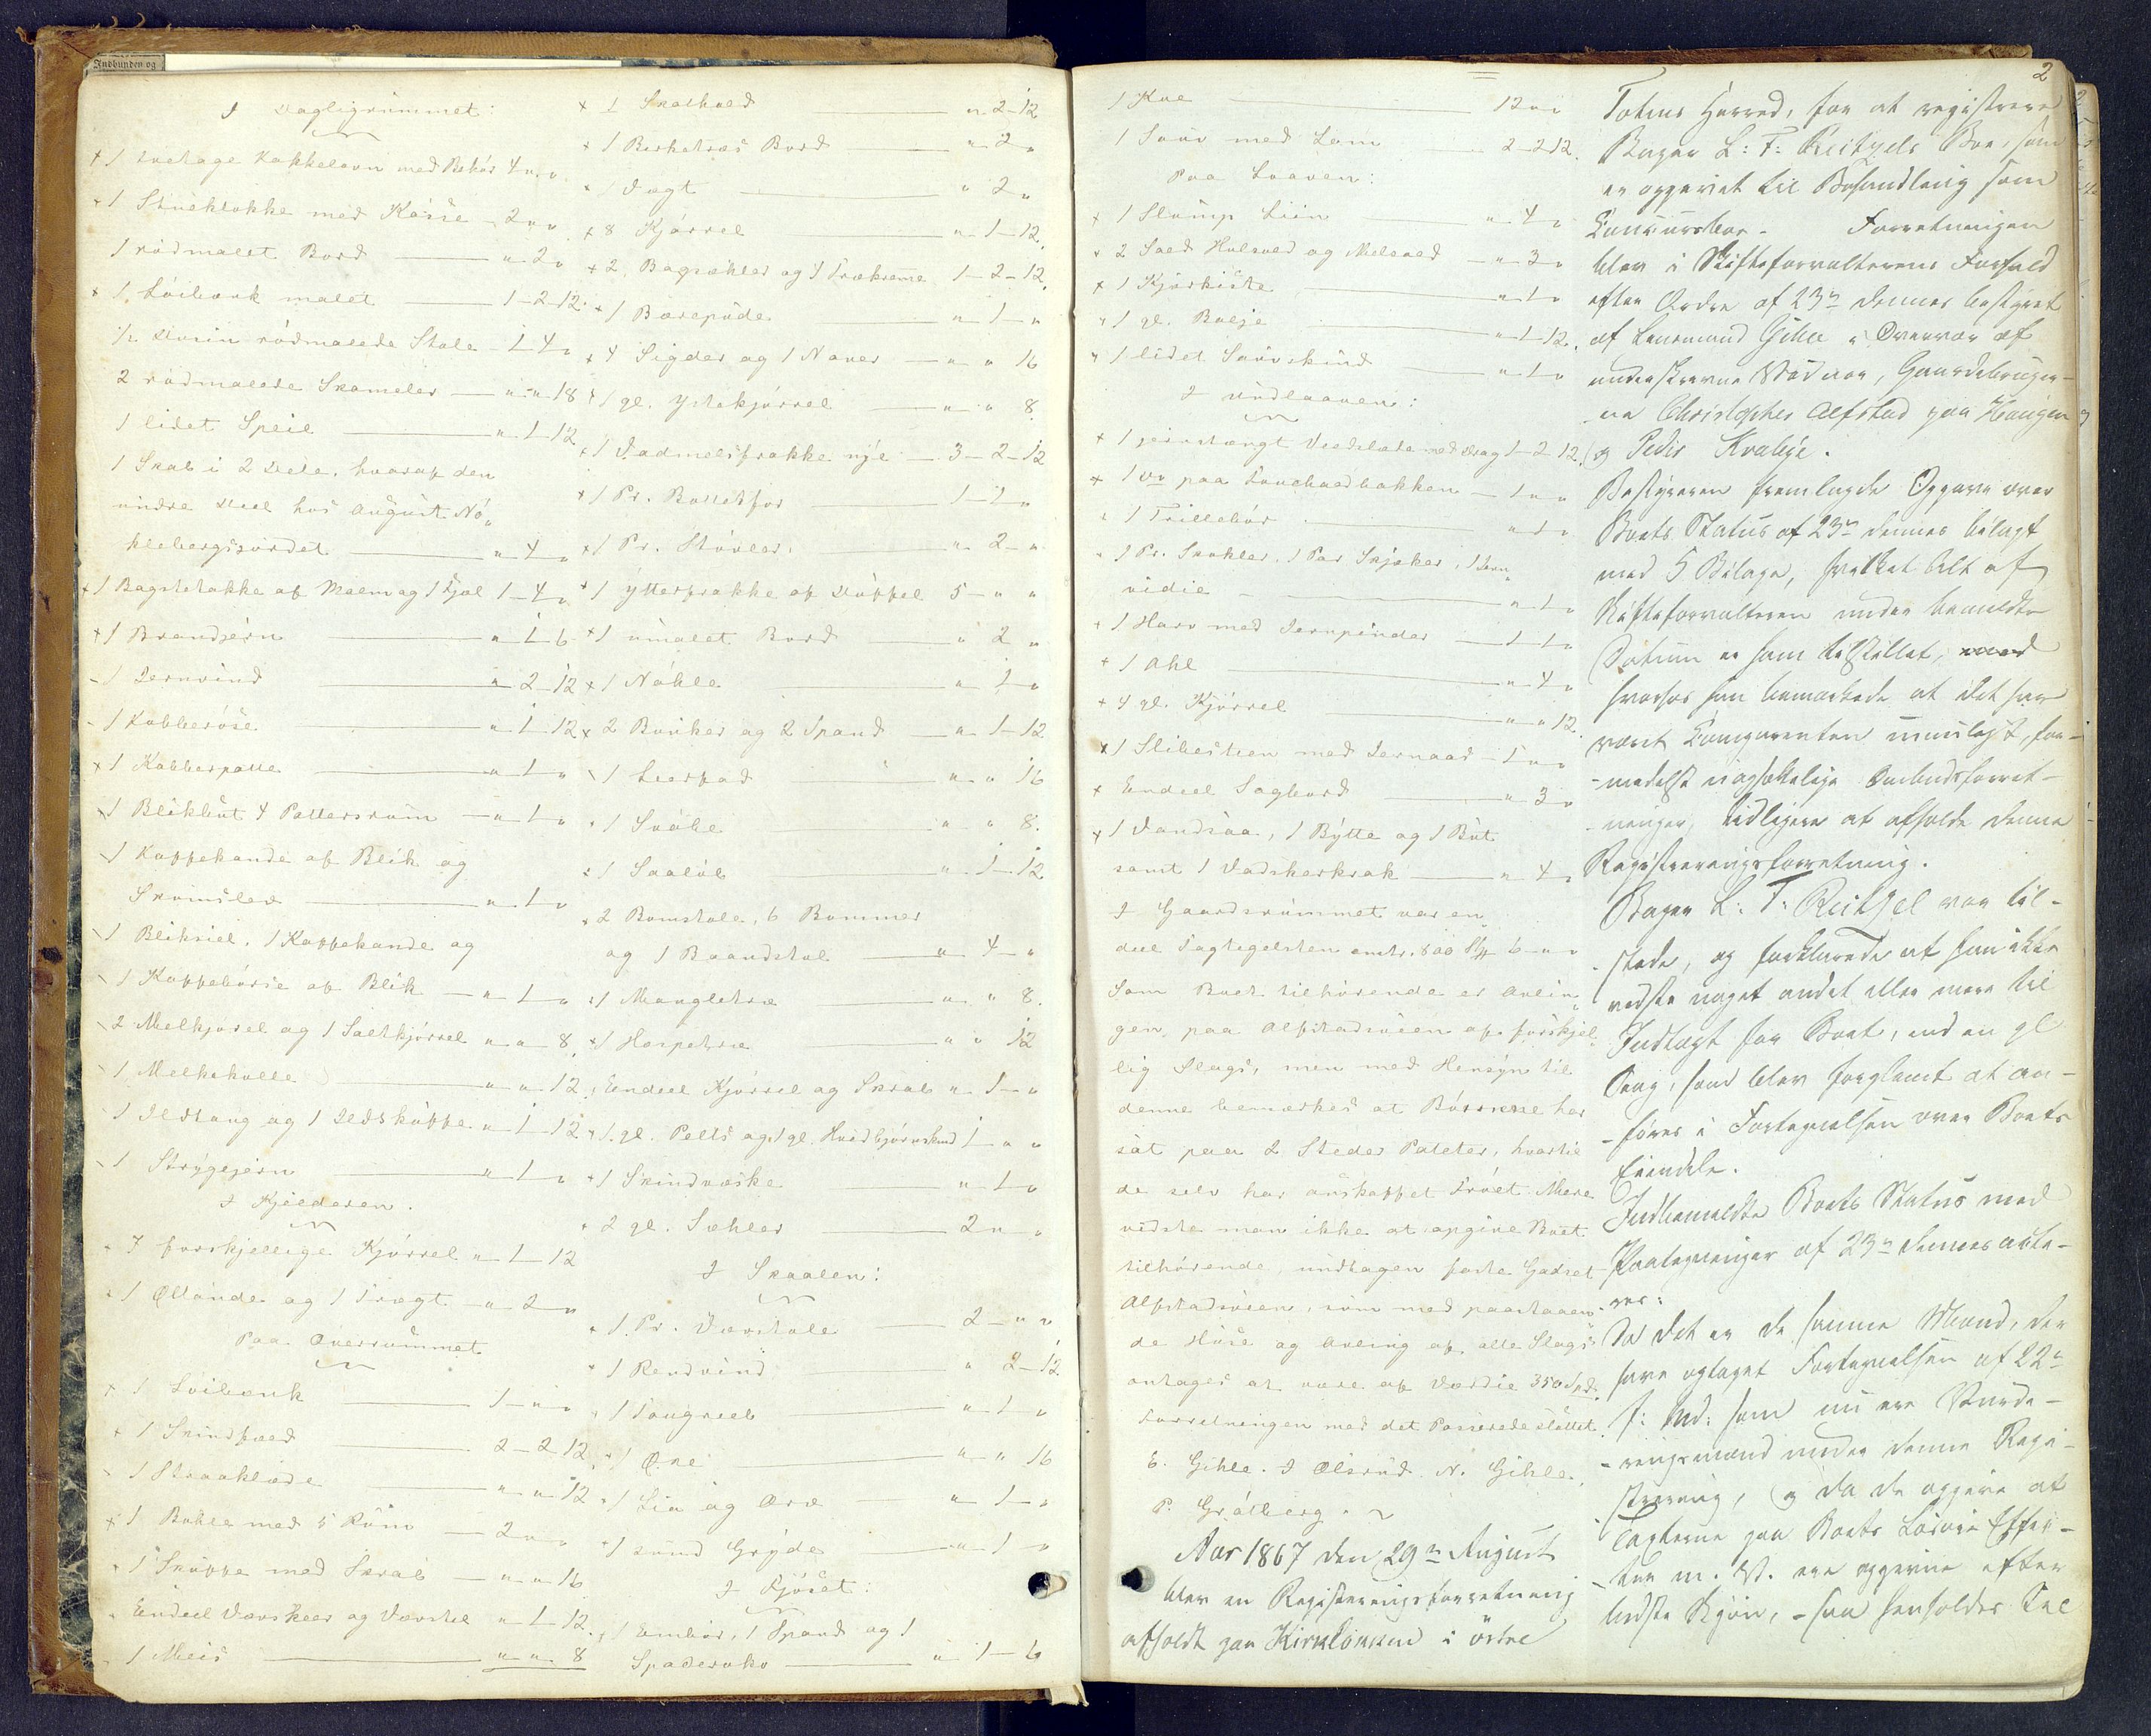 Indbunden og
I Dagligrummet:
+ 1 toetage Kakkelovn med Rekör 4 " "
+ 1 Stueklokke med Kasse - 2 " "
1 rödmalet Bord " 2 "
+ 1 Löibænk malet 1-2-12.
½ Dusin rödmalede Stole - 1-4 "
2 rödmalede Skameler " " 18
1 lidet Speil " 1-12
1 Skab i 2 Dele, hvoraf den
undre Deel hos August Nö„
klebergsördet " 4 "
+ 1 Bagstetakke af Malm og 1 Fjöl 1-4 "
+ 1 Brandjern " 1-6
- 1 Jernvind " 2-12
- 1 Kobberöse " 1-12
+ 1 Kobberpotte " 1 "
1 Blikbut 4 Pottersrum - " 1 "
1 Kaffekande af Blik og
Skrimsler " 1 "
1 Bliksiel, 1 Kaffekande og
1 Kaffebörse af Blik - " 1 "
2 Melkjörel og 1 Saltkjörrel " " 8.
1 Melkekolle " " 12
1 Ildtang og 1 Ildskuffe " 1-12
1 Strygejern " 1 "
I Kjælderen.
7 forskjellige Kjörrel " 1-12
1 Öltönde og 1 Tragt - " 2 "
Paa Overrummet
+ 1 Löibænk 1 - " "
+ 1 Skindfæld 2-2-12
1 Straaklæde " " 12
+ 1 Buhle med 5 Rum - 2 " "
1 Skuppe med Skrab - " " 16
Endeel Vævskeer og Vævstol " 1-12
1 Meis " " 8
+ 1 Skathved " 2-12
+ 1 Birketræs Bord " 2 "
+ 1 Vægt " 2 "
+ 8 Kjörrel " 1-12.
+ 2 Bagsæhler og 1 Trækreme 1-2-12.
+ 1 Bærepude " 1 - "
+ 4 Sigder og 1 Naver " " 16
1 gl. Ystekjörrel " " 8.
+ 1 Vadmelsfrakke nye - 3-2-12
+ 1 Pr. Buxetför 1-1 "
+ 1 Pr. Stövler. " 2- "
+ 1 Ytterfrakke af Düffel 5- " "
+ 1 umalet Bord " 2 "
+ 1 Nökle " 1 "
+ 2 Bunker og 2 Spand " 1-12
1 Leerfad " " 16
+ 1 Svöbe " " 8.
+ 1 Saalöb " 1-12
+ 2 Bomstole, 6 Bommer
og 1 Baandstol " 4 - "
+ 1 Mangletræ " " 8.
+ 1 Haspetræ " " 12
Endeel Kjörrel og Skrab " 1 - "
1 gl. Pelts og 1 gl. Hvidbjörnskind 1 - " "
+ 1 Skindvæske " 1 "
+ 2 gl. Sæhler 2 " "
I Skaalen:
+ 1 Pr. Vævstole 2 - " "
+ 1 Rendvind " 2-12.
1 Tougreeb " 1 "
+ 1 Öxe " " 16
+ 1 Lia og Orv " 1 - "
+ 1 rund Gryde " 1 "
I Fjöset:
1 Embör, 1 Spand og 1
Spaderoko " 1-6
2
1 Koe 12 " "
1 Souv med Lam 2-2-12.
Paa Laaven:
+ 1 Slump Liin " 4 "
+ 2 Saald Hulsold og Melsold - " 3 "
+ 1 Kjörkiste " 1 "
" 1 gl. Boeje " 1-12.
" 1 lidet Sauvskind " 1 "
I Vedlaaven:
+ 1 jernstængt Veedslæde med Drag 1-2-12.
+ 1 do paa Lovehoedbakken - 1 " "
1 Trillebör " 1 "
1 Pr. Skokler, 1 Par Skjæker, 1 Jern„
vidie " 1 "
+ 1 Harv med Jernpinder 1-1 "
+ 1 Ahl " 4 "
+ 4 gl. Kjörrel " " 12.
+ 1 Slibesteen med Jernaad - 1 " "
+ Endeel Sagbord " 3 "
+ 1 Vandsaa, 1 Bytte og 1 But
samt 1 Vadskerkrak " 4 "
I Gaardsrummet var en„
deel Tagtegelsten omtr. 800 Stk 6 - " "
Som Boet tilhörende er Avlin„
gen paa Alfstadsöien af forskjel„
lig Slags, men med Hensyn til
denne bemærkes at Börnene har
sat paa 2 Steder Poteter, hvortil
de selv har anskaffet Fröet. Mere
vidste man ikke at opgive Boet
tilhörende, undtagen faste Godset
Alfstadsöien, som med paastaaen-
de Huse og Avling af alle Slags
antages at være af Værdie 350 Spd.
Forretningen med det Passerede sluttet.
E. Gihle. I Ölsrud. N. Gihle.
P. Gråtberg.
Aar 1867 den 29de August
blev en Registreringsforretning
afholdt paa Kirklönnen i östre
Totens Herred, for at registrere
Bager L: T: Reitzels Boe, som
er opgivet til Behandling som
Concursboe. - Forretningen
blev i Skifteforvalterens Forfald
efter Ordre af 23de dennes bestyret
af Lensmand Gihle i Overvær af
underskrevne Vidner, Gaardbruger-
ne Christopher Alfstad paa Haugen
og Peder Kvalbye.
Bestyreren fremlagde Opgave over
Boets Status af 23de dennes bilagt
med 5 Bilage, hvilket Alt af
Skifteforvalteren under bemeldte
Datum er ham tilstillet, med
hvorhos han bemærkede at det har
været Comparenten umuligt, for-
-medelst uopsættelige Ombudsforret-
-ninger, tidligere at afholde denne
Registreringsforretning.
Bager L: T: Reitzel var til-
-stede, og forklarede at han ikke
vidste noget andet eller mere til
Indtægt for Boet, end en gl
Seng, som blev forglemt at an-
-föres i Fortegnelsen over Boets
Eiendele.
Indbemeldte Boets Status med
Paategninger af 23de dennes acte-
res:
Da det er de samme Mænd, der
have optaget Fortegnelsen af 22de
f: Md: som nu ere Vurde-
-ringsmænd under denne Regi-
strering, og da de opgive at
Taxterne paa Boets Lösöre Effec-
-ter m. V. ere opgivne efter
bedste Skjön, - saa henholdes til